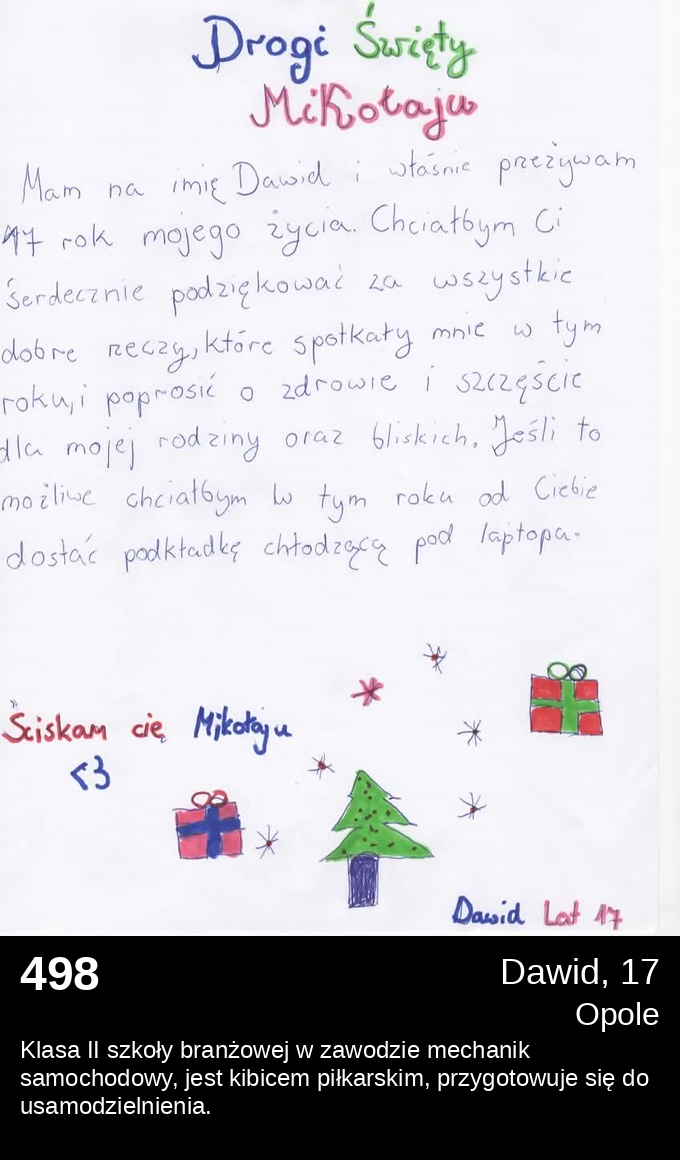 Drogi Święty
Mikołaju
Mam na imię Dawid i właśnie przeżywam
17 rok mojego życia. Chciałbym Ci
serdecznie podziękować za wszystkie
dobre rzeczy, które spotkały mnie w tym
roku, i poprosić o zdrowie i szczęście
dla mojej rodziny oraz bliskich. Jeśli to
możliwe chciałbym w tym roku od Ciebie
dostać podkładkę chłodzącą pod laptopa.
Ściskam cię Mikołaju
<3
Dawid Lat 17
498
Dawid, 17
Opole
Klasa II szkoły branżowej w zawodzie mechanik
samochodowy, jest kibicem piłkarskim, przygotowuje się do
usamodzielnienia.